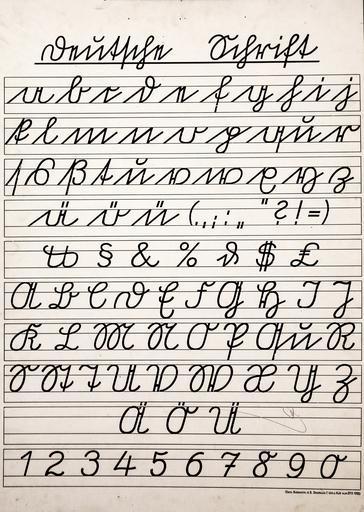 Deutsche Schrift
a b c d e f g h i j
k l m n o p qu r
ſ s ß t u v w x y z
ä ö ü (.,;:„ "?!=)
℔ § & % ₰ $ £
A B C D E F G H I J
K L M N O P Qu R
S St T U V W X Y Z
Ä Ö Ü
1 2 3 4 5 6 7 8 9 0